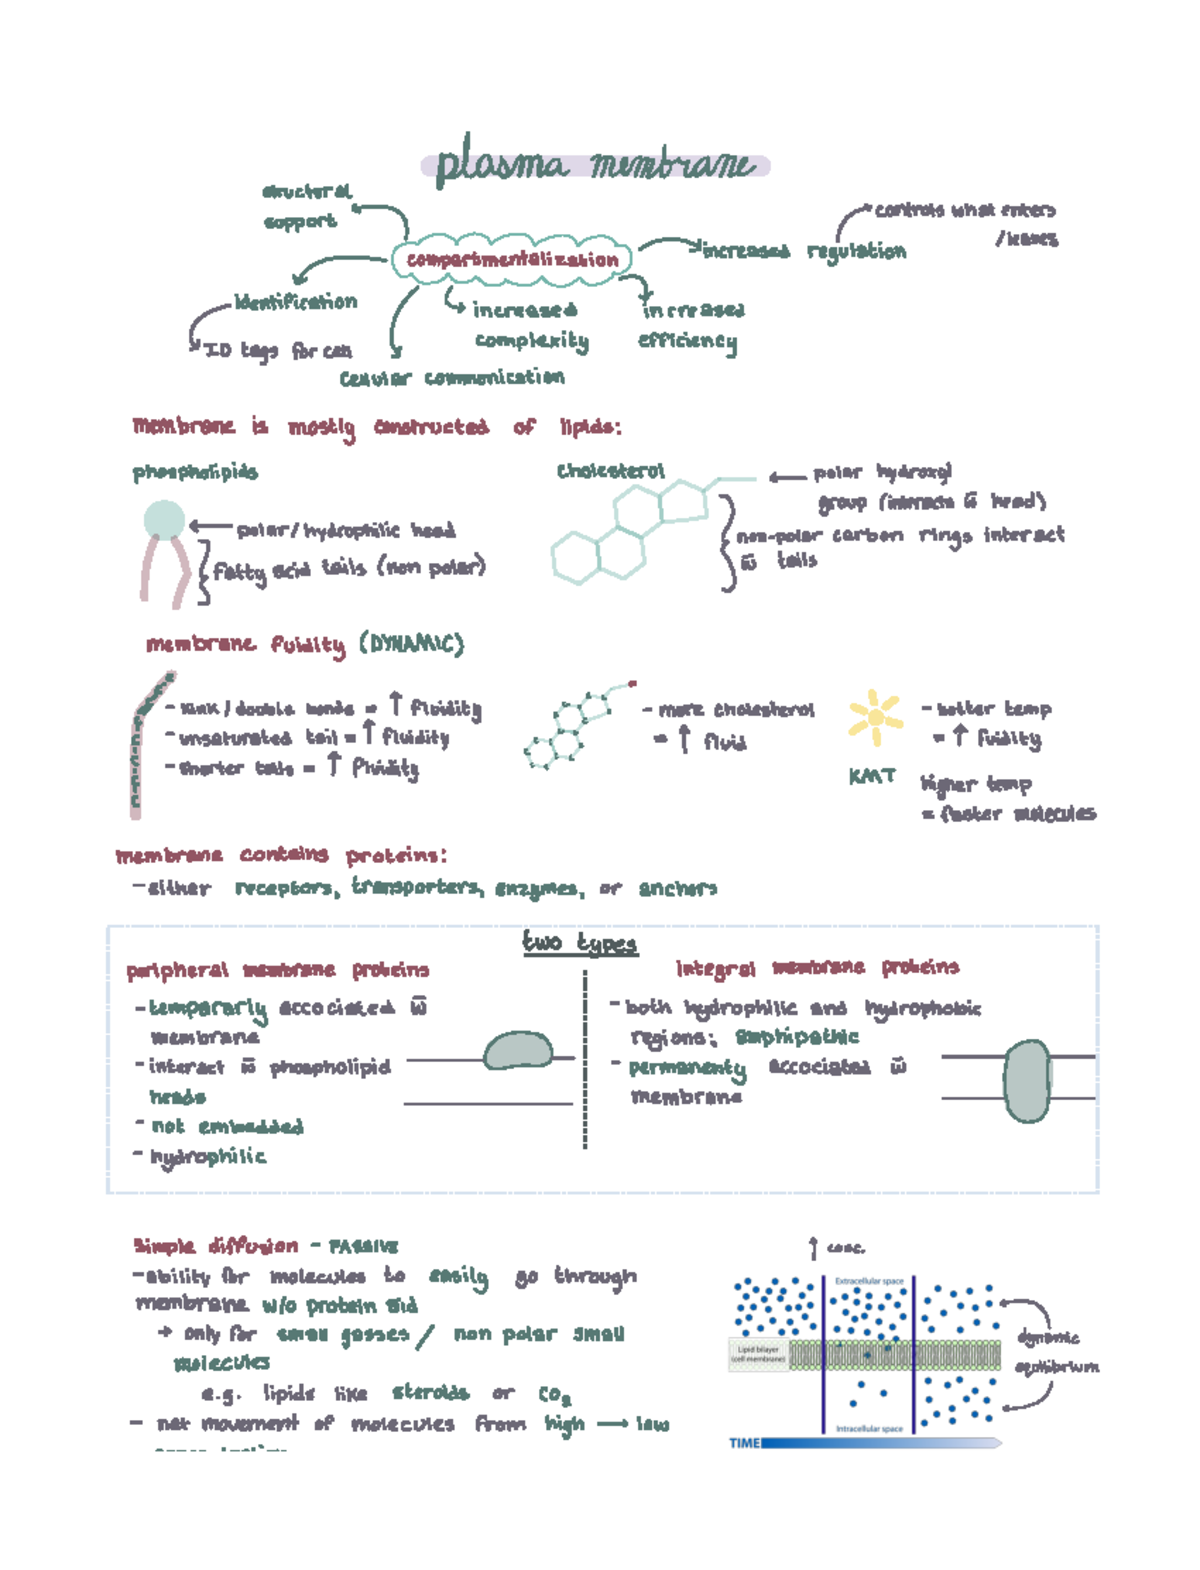 plasma membrane
structural
support
compartmentalization
increased regulation
controls what enters
/leaves
Identification
ID tags for cell
increased
complexity
increased
efficiency
Cellular communication
membrane is mostly constructed of lipids:
phospholipids
polar/hydrophilic head
fatty acid tails (non polar)
Cholesterol
polar hydroxyl
group (interacts w̄ head)
non-polar carbon rings interact
w̄ tails
membrane fuidity (DYNAMIC)
- kink/double bonds = ↑ fluidity
- unsaturated tail = ↑ fluidity
- shorter tails = ↑ fluidity
- more cholesterol
= ↑ fluid
KMT
- hotter temp
= ↑ fuidity
higher temp
= faster molecules
membrane contains proteins:
- either receptors, transporters, enzymes, or anchors
two types
peripheral membrane proteins
- temporarly accociated w̄
membrane
- interact w̄ phospholipid
heads
- not embedded
- hydrophilic
Integral membrane proteins
- both hydrophilic and hydrophobic
regions; amphipathic
- permanenty accociated w̄
membrane
Simple diffusion - PASSIVE
- ability for molecules to easily go through
membrane w/o protein aid
→ only for small gasses/ non polar small
molecules
e.g. lipids like steroids or CO2
- net movement of molecules from high → low
↑ conc.
Extracellular space
Lipid bilayer
(cell membrane)
Intracellular space
TIME
dynamic
equilibrium